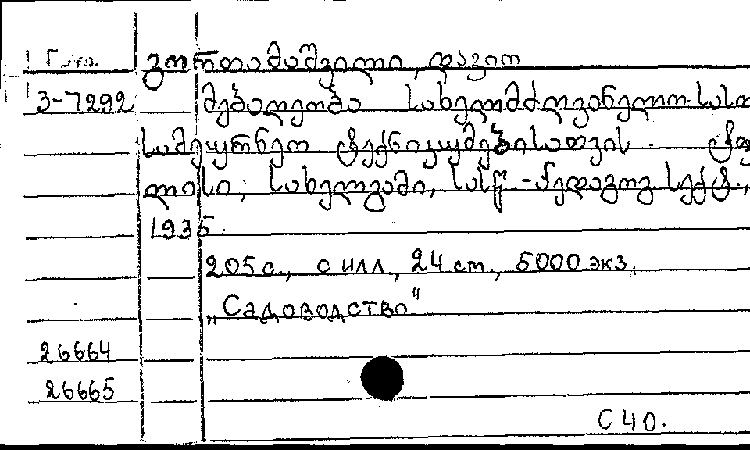 გორდამაშვილი, დავით
3-7292 მებაღეობა სახელმძღვანელო სასო
სამეურნეო ტექნიკუმებისათვის. ტფ
ილისი, სახელგამი, სასწ.-პედაგოგ. სექტ.,
1935.
205 с., с илл., 24 cm., 5000 экз.
"Садоводство"
26664
26665
С 40.